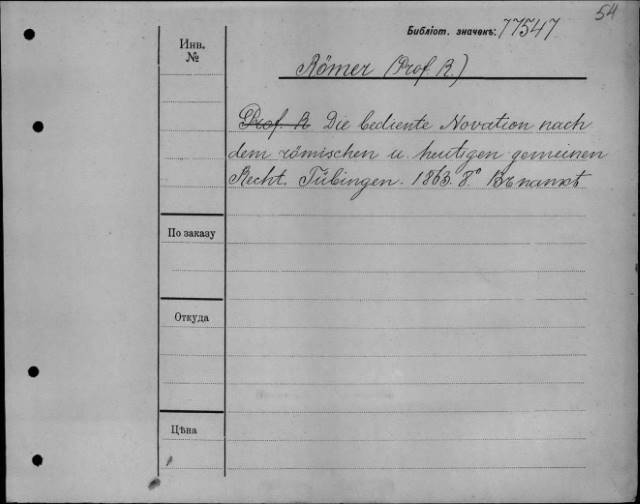 54
Библіот. значекъ: 77547
Инв.
№
Römer (Prof. R.)
Prof. R Die bediente Novation nach
dem römischen u. heutigen gemeinen
Recht. Tübingen. 1863. 8° Въ папкѣ
По заказу
Откуда
Цѣна